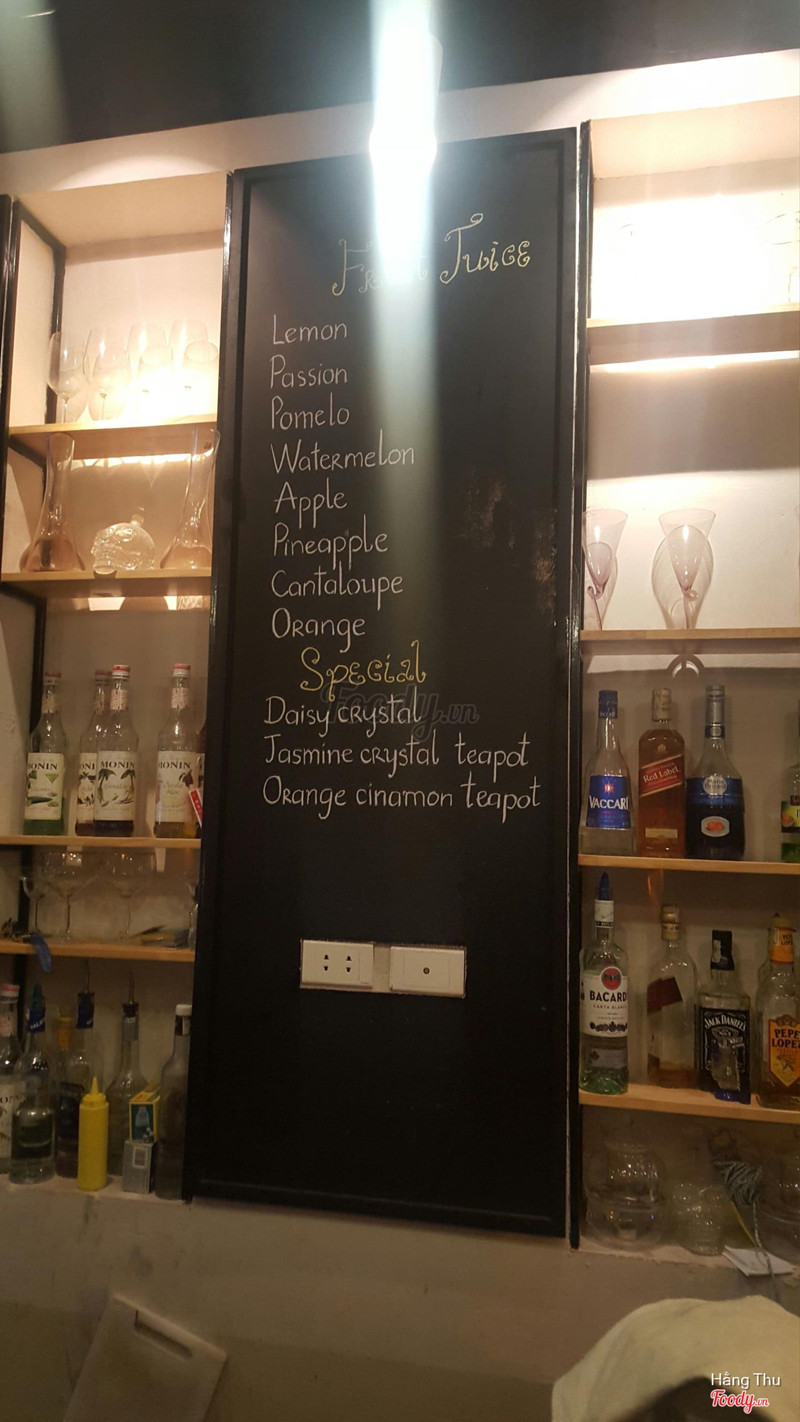 Fruit Juice
Lemon
Passion
Pomelo
Watermelon
Apple
Pineapple
Cantaloupe
Orange
Special
Foody.vn
Daisy crystal
Jasmine crystal teapot
Orange cinamon teapot
MONIN
MONIN
MONIN
VACCARI
Red Label
BACARDI
JACK DANIEL'S
PEPE LOPEZ
Hằng Thu
Foody.vn